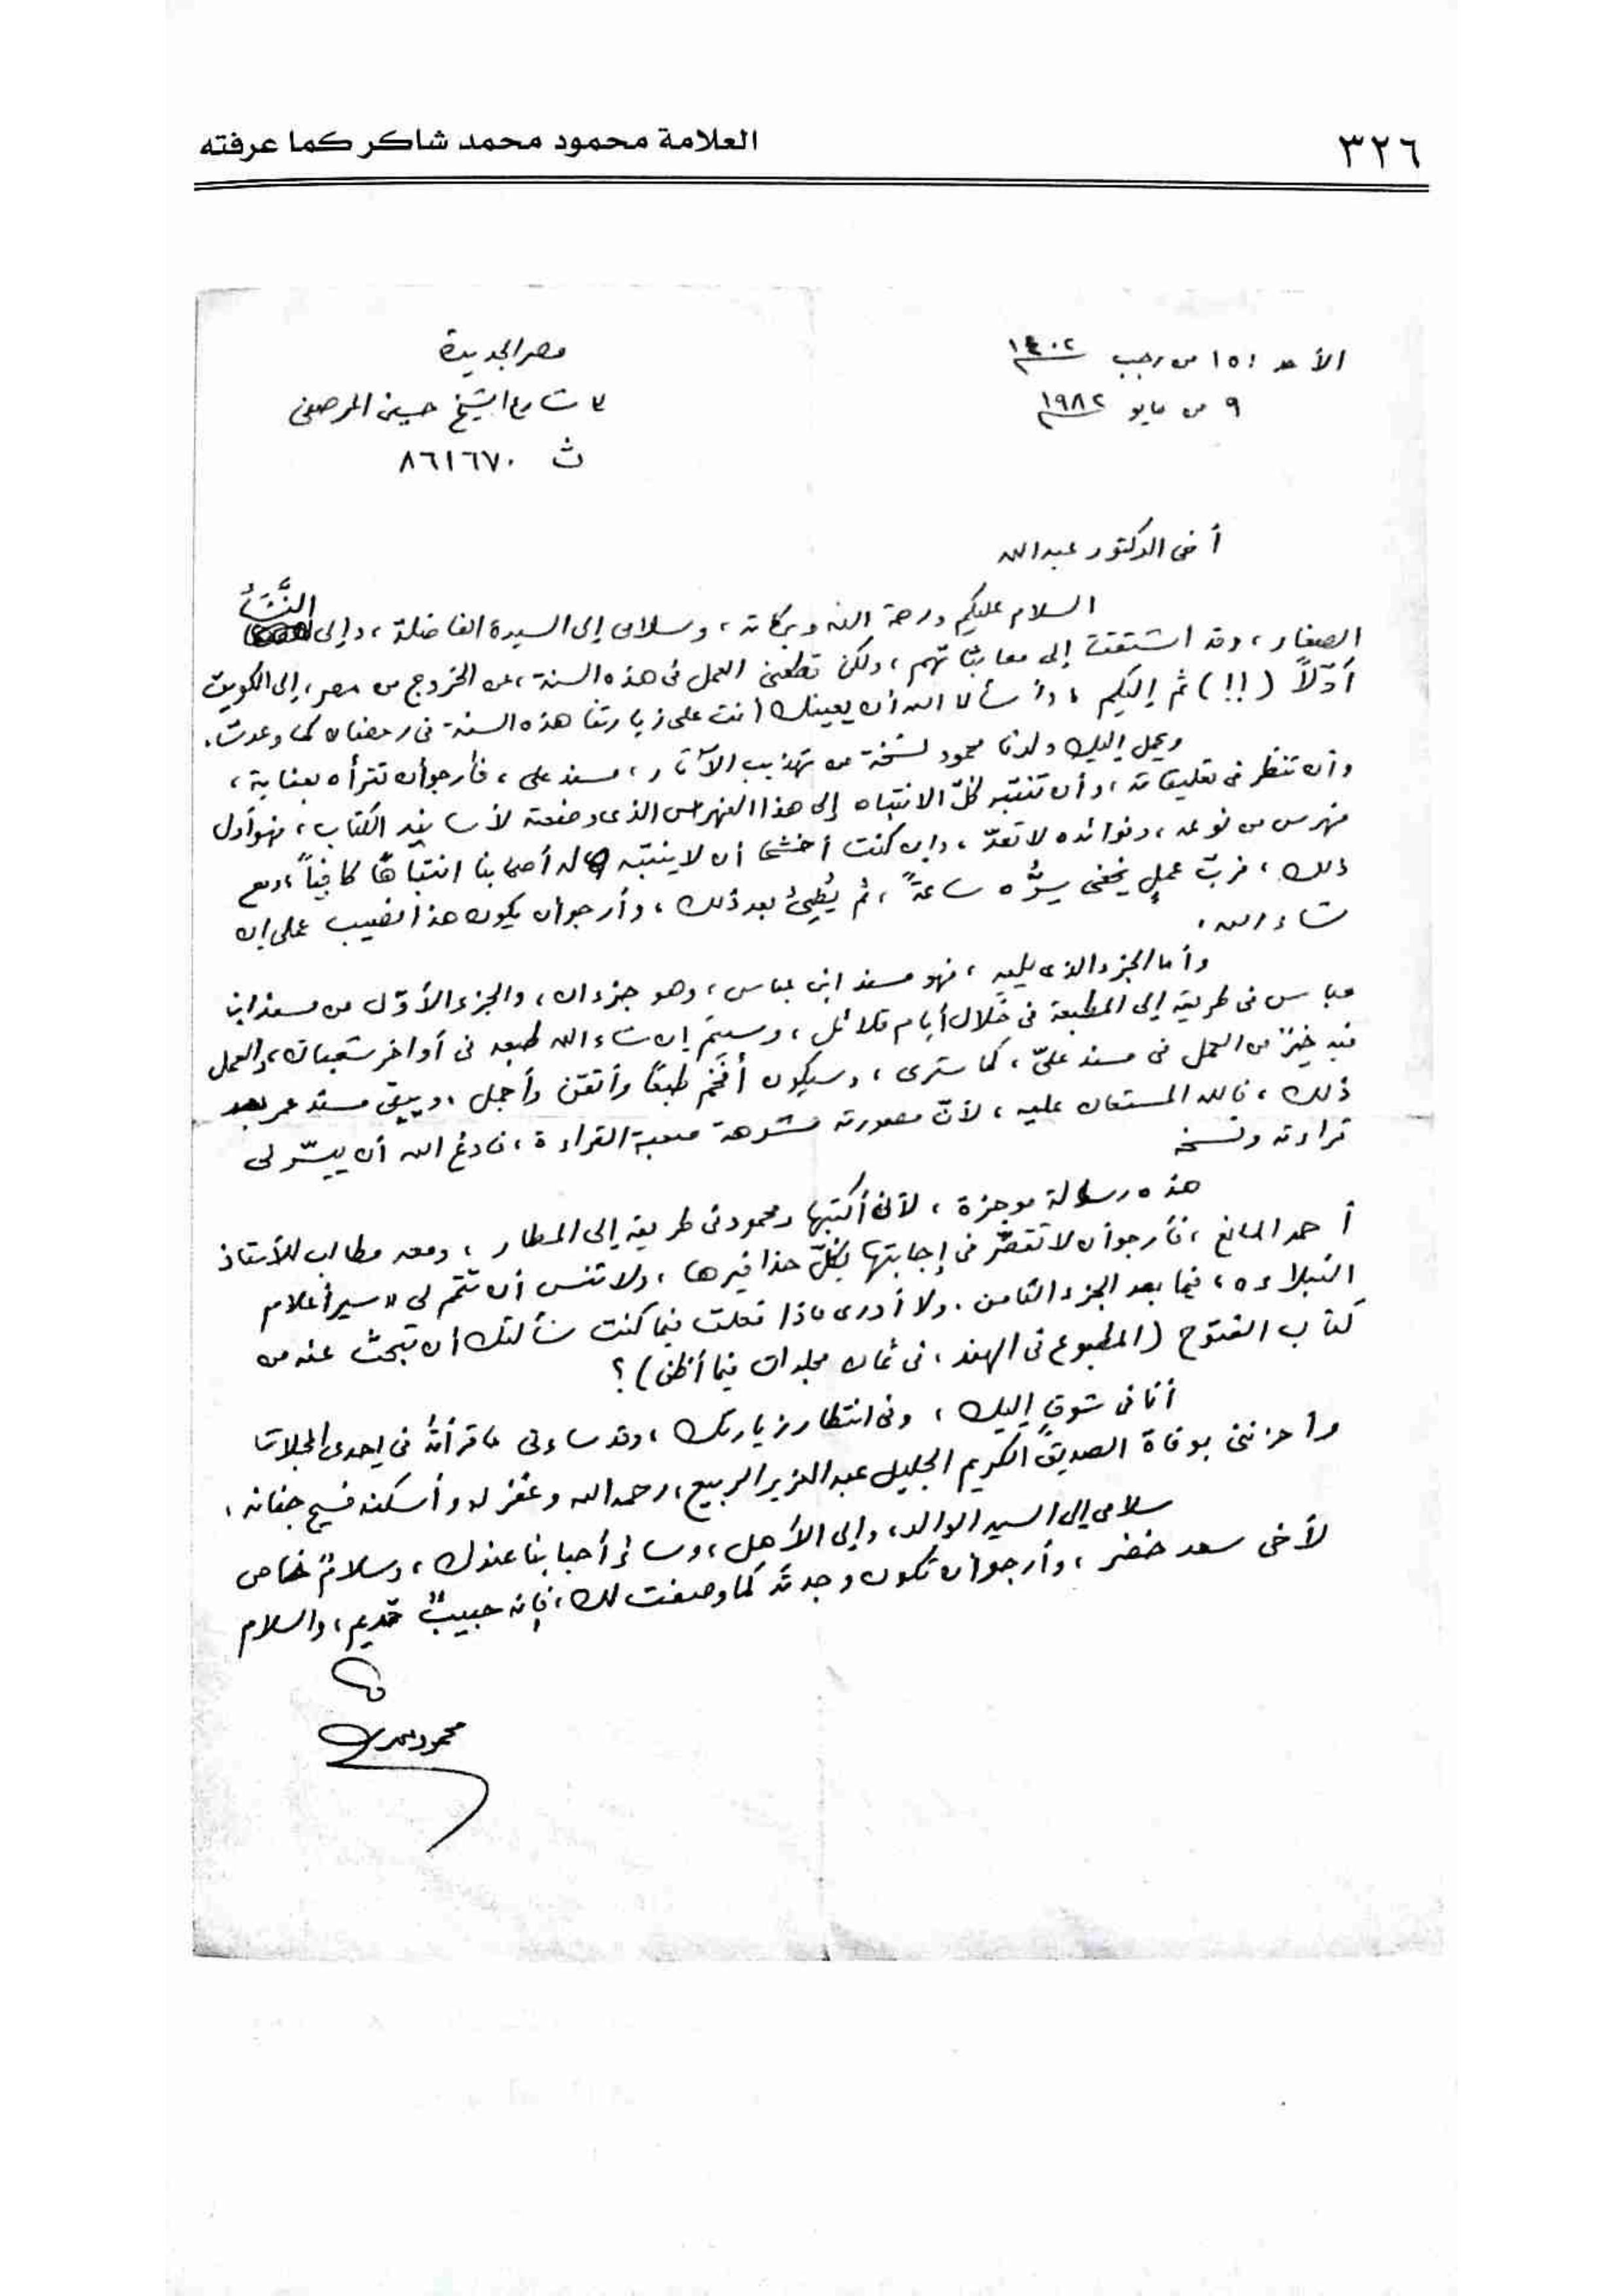 ٣٢٦
العلامة محمود محمد شاكر كما عرفته
الأحد ١٥ من رجب ١٤٠٢
٩ من مايو ١٩٨٢
مصر الجديدة
شارع الشيخ حسين المرصفى
ث ٨٦١٦٧٠
أخى الدكتور عبد الله
السلام عليكم ورحمة الله وبركاته، وسلامى إلى السيدة الفاضلة، وإلى النَّشَأُ
الصغار، وقد اشتقت إلى معابثاتهم، ولكن قطعنى العمل فى هذه السنة، عن الخروج من مصر، إلى الكويت
أوّلاً (!!) ثم إليكم، وأسأل الله أن يعينك أنت على زيارتنا هذه السنة فى رمضان كما وعدت.
ويحمل إليك ولدنا محمود نسخة من تهذيب الآثار، مسند على، فأرجو أن تقرأه بعناية،
وأن تنظر فى تعليقاته، وأن تنتبه كلّ الانتباه إلى هذا الفهرس الذى وضعته لأسانيد الكتاب، فهو أول
فهرس من نوعه، وفوائده لا تعدّ، وإن كنت أخشى أن لا ينتبه له أصحابنا انتباهًا كافيًا، ومع
ذلك، فربّ عملٍ يخفى سِرُّه ساعةً، ثم يُضِىُ بعد ذلك، وأرجو أن يكون هذا نصيب عملى إن
شاء الله.
وأما الجزء الذى يليه، فهو مسند ابن عباس، وهو جزءان، والجزء الأوّل من مسند ابن
عباس فى طريقه إلى المطبعة فى خلال أيام قلائل، وسيتم إن شاء الله طبعه فى أواخر شعبان، والعمل
فيه خيرٌ من العمل فى مسند علىّ، كما سترى، وسيكون أفخم طبعًا وأتقن وأجمل، ويبقى مسند عمر بعد
ذلك، فالله المستعان عليه، لأنّ مصورته مشوهة صعبة القراءة، فادعُ الله أن ييسّر لى
قراءته ونسخه
هذه رسالة موجزة، لأنى أكتبها ومحمود فى طريقه إلى المطار، ومعه مطالب للأستاذ
أحمد المانع، فأرجو أن لا تقصّر فى إجابتها بكلّ حذافيرها، ولا تنس أن تتم لى «سير أعلام
النبلاء»، فيما بعد الجزء الثامن. ولا أدرى ماذا فعلت فيما كنت سألتك أن تبحث عنه من
كتاب الفتوح (المطبوع فى الهند، فى ثمان مجلدات فيما أظن)؟
أنا فى شوقٍ إليك، وفى انتظار زيارتك، وقد ساءنى ما قرأته فى إحدى المجلات
وأحزننى بوفاة الصديق الكريم الجليل عبد العزيز الربيع، رحمه الله وغفر له وأسكنه فسيح جنانه،
سلامى إلى السيد الوالد، وإلى الأهل، وسائر أحبابنا عندك، وسلامٌ خاص
لأخى سعد خضر، وأرجو أن تكون وجدته كما وصفت لك، فإنه حبيبٌ قديم، والسلام
محمود